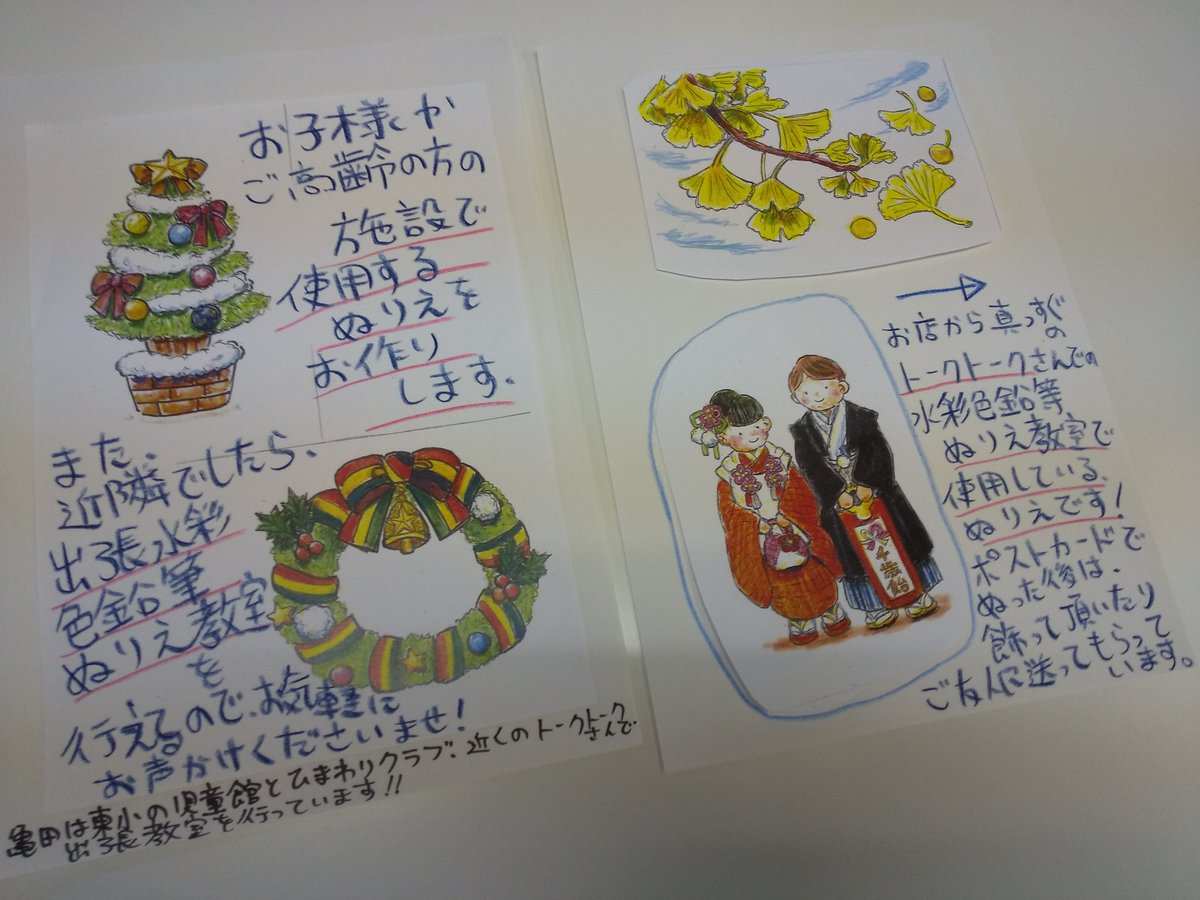 お子様や
ご高齢の方の
施設で
使用する
ぬりえを
お作り
します。
また、
近隣でしたら、
出張水彩
色鉛筆
ぬりえ教室
を
行えるので、お気軽に
お声かけくださいませ!
亀田は東小の児童館とひまわりクラブ、近くのトークトーク
さんで
出張教室を行っています!!
→
お店から真っすぐ
の
トークトークさんでの
水彩色鉛筆
ぬりえ教室で
使用している、
ぬりえです!
ポストカードで
ぬった後は、
飾って頂いたり
ご友人に送ってもらって
います。
千歳飴